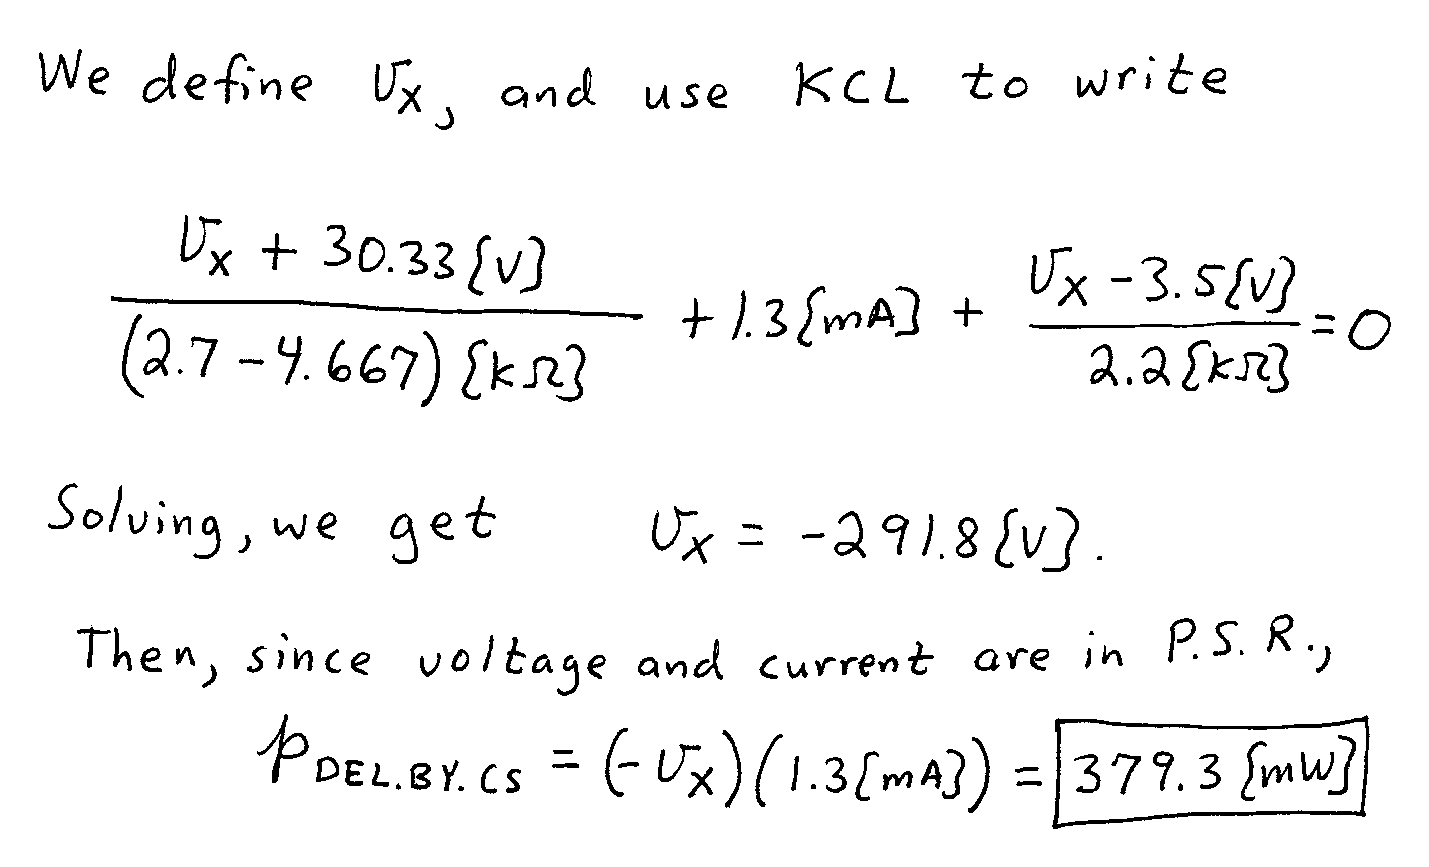 We define v_x, and use KCL to write
(v_x + 30.33{V}) / ((2.7 - 4.667){kΩ}) + 1.3{mA} + (v_x - 3.5{V}) / (2.2{kΩ}) = 0
Solving, we get v_x = -291.8{V}.
Then, since voltage and current are in P.S.R.,
p_DEL.BY.CS = (-v_x)(1.3{mA}) = 379.3{mW}